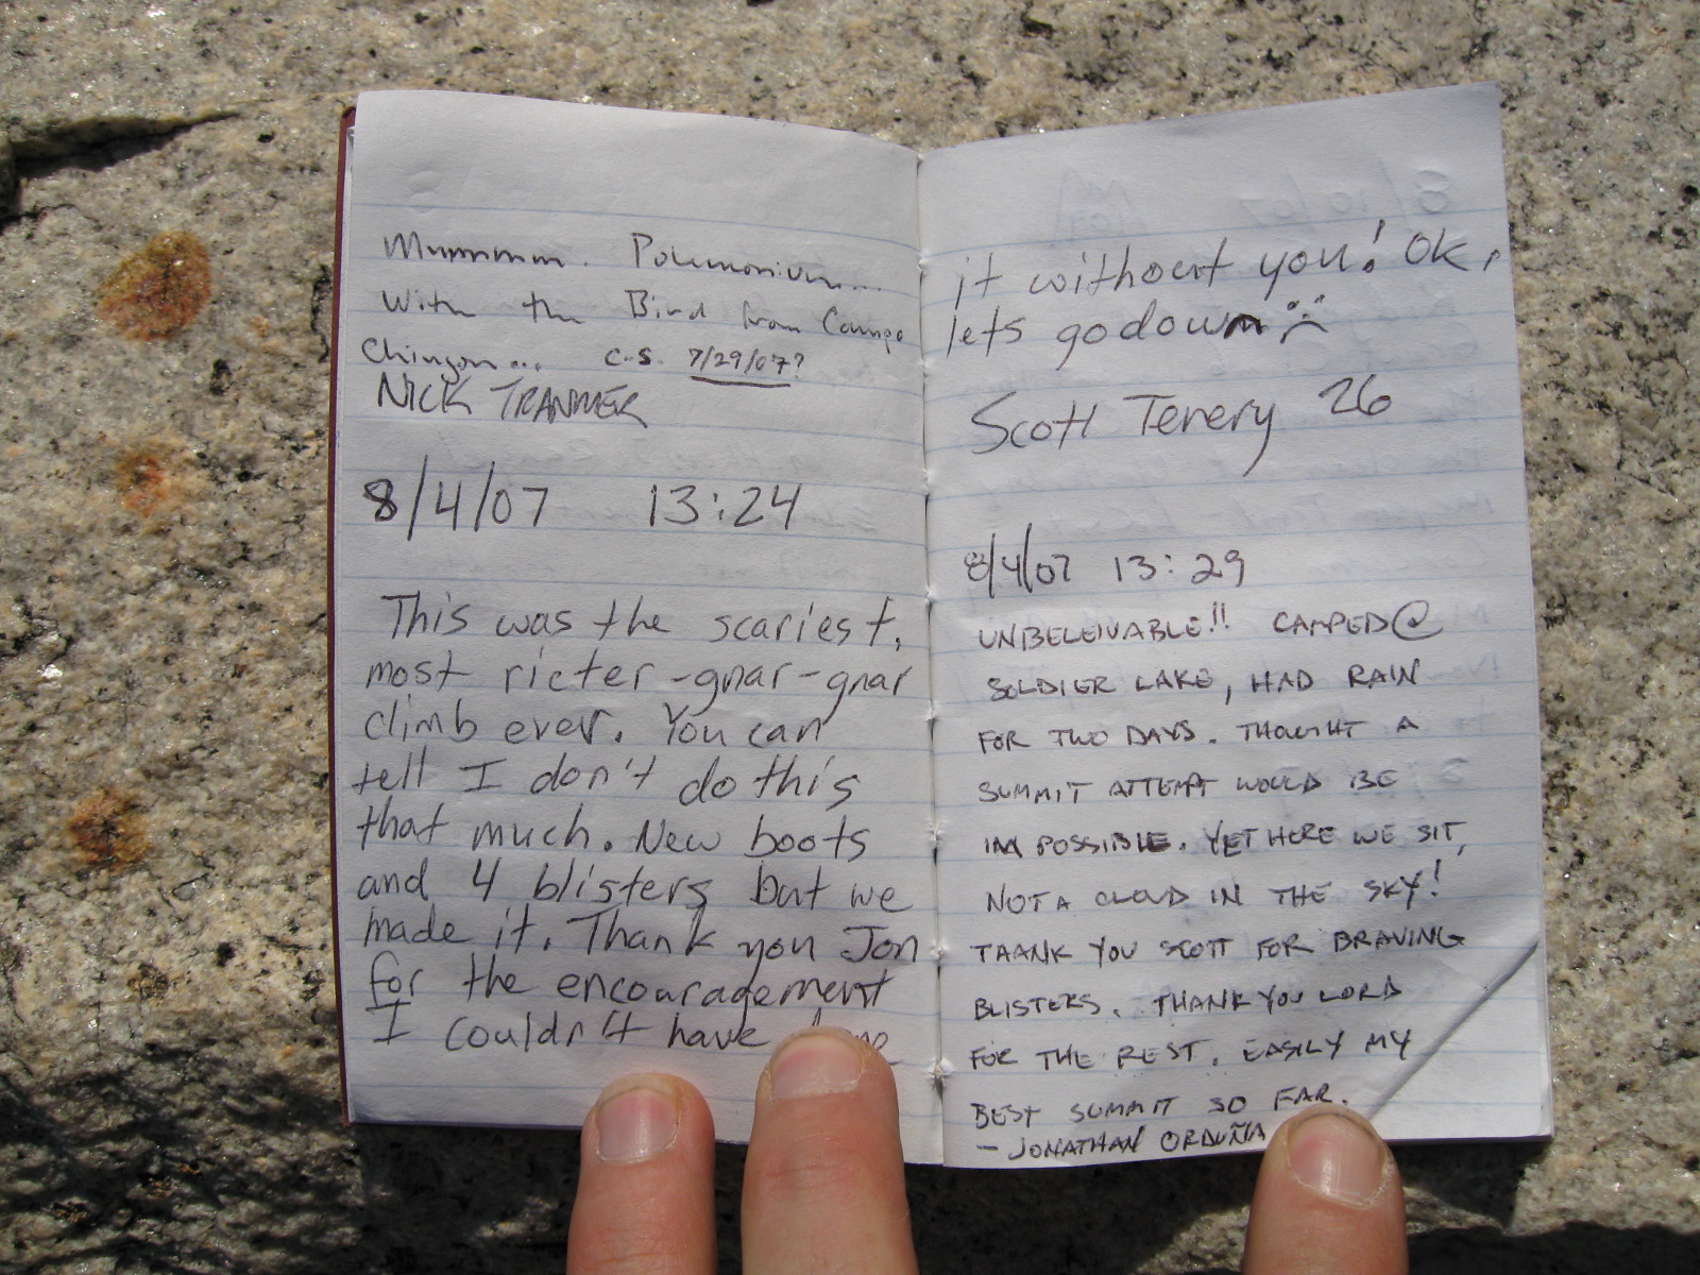 Mummmm. Polemonium...
With the Bird from Campo
Chingon... C.S. 7/29/07?
NICK TRANMER
8/4/07 13:24
This was the scariest,
most ricter-gnar-gnar
climb ever. You can
tell I don't do this
that much. New boots
and 4 blisters but we
made it. Thank you Jon
for the encouragement
I couldn't have
it without you! Ok,
lets go down :(
Scott Tenery 26
8/4/07 13:29
UNBELEIVABLE!! CAMPED @
SOLDIER LAKE, HAD RAIN
FOR TWO DAYS. THOUGHT A
SUMMIT ATTEMPT WOULD BE
IMPOSSIBLE. YET HERE WE SIT,
NOT A CLOUD IN THE SKY!
THANK YOU SCOTT FOR BRAVING
BLISTERS. THANK YOU LORD
FOR THE REST. EASILY MY
BEST SUMMIT SO FAR.
- JONATHAN ORDUÑA